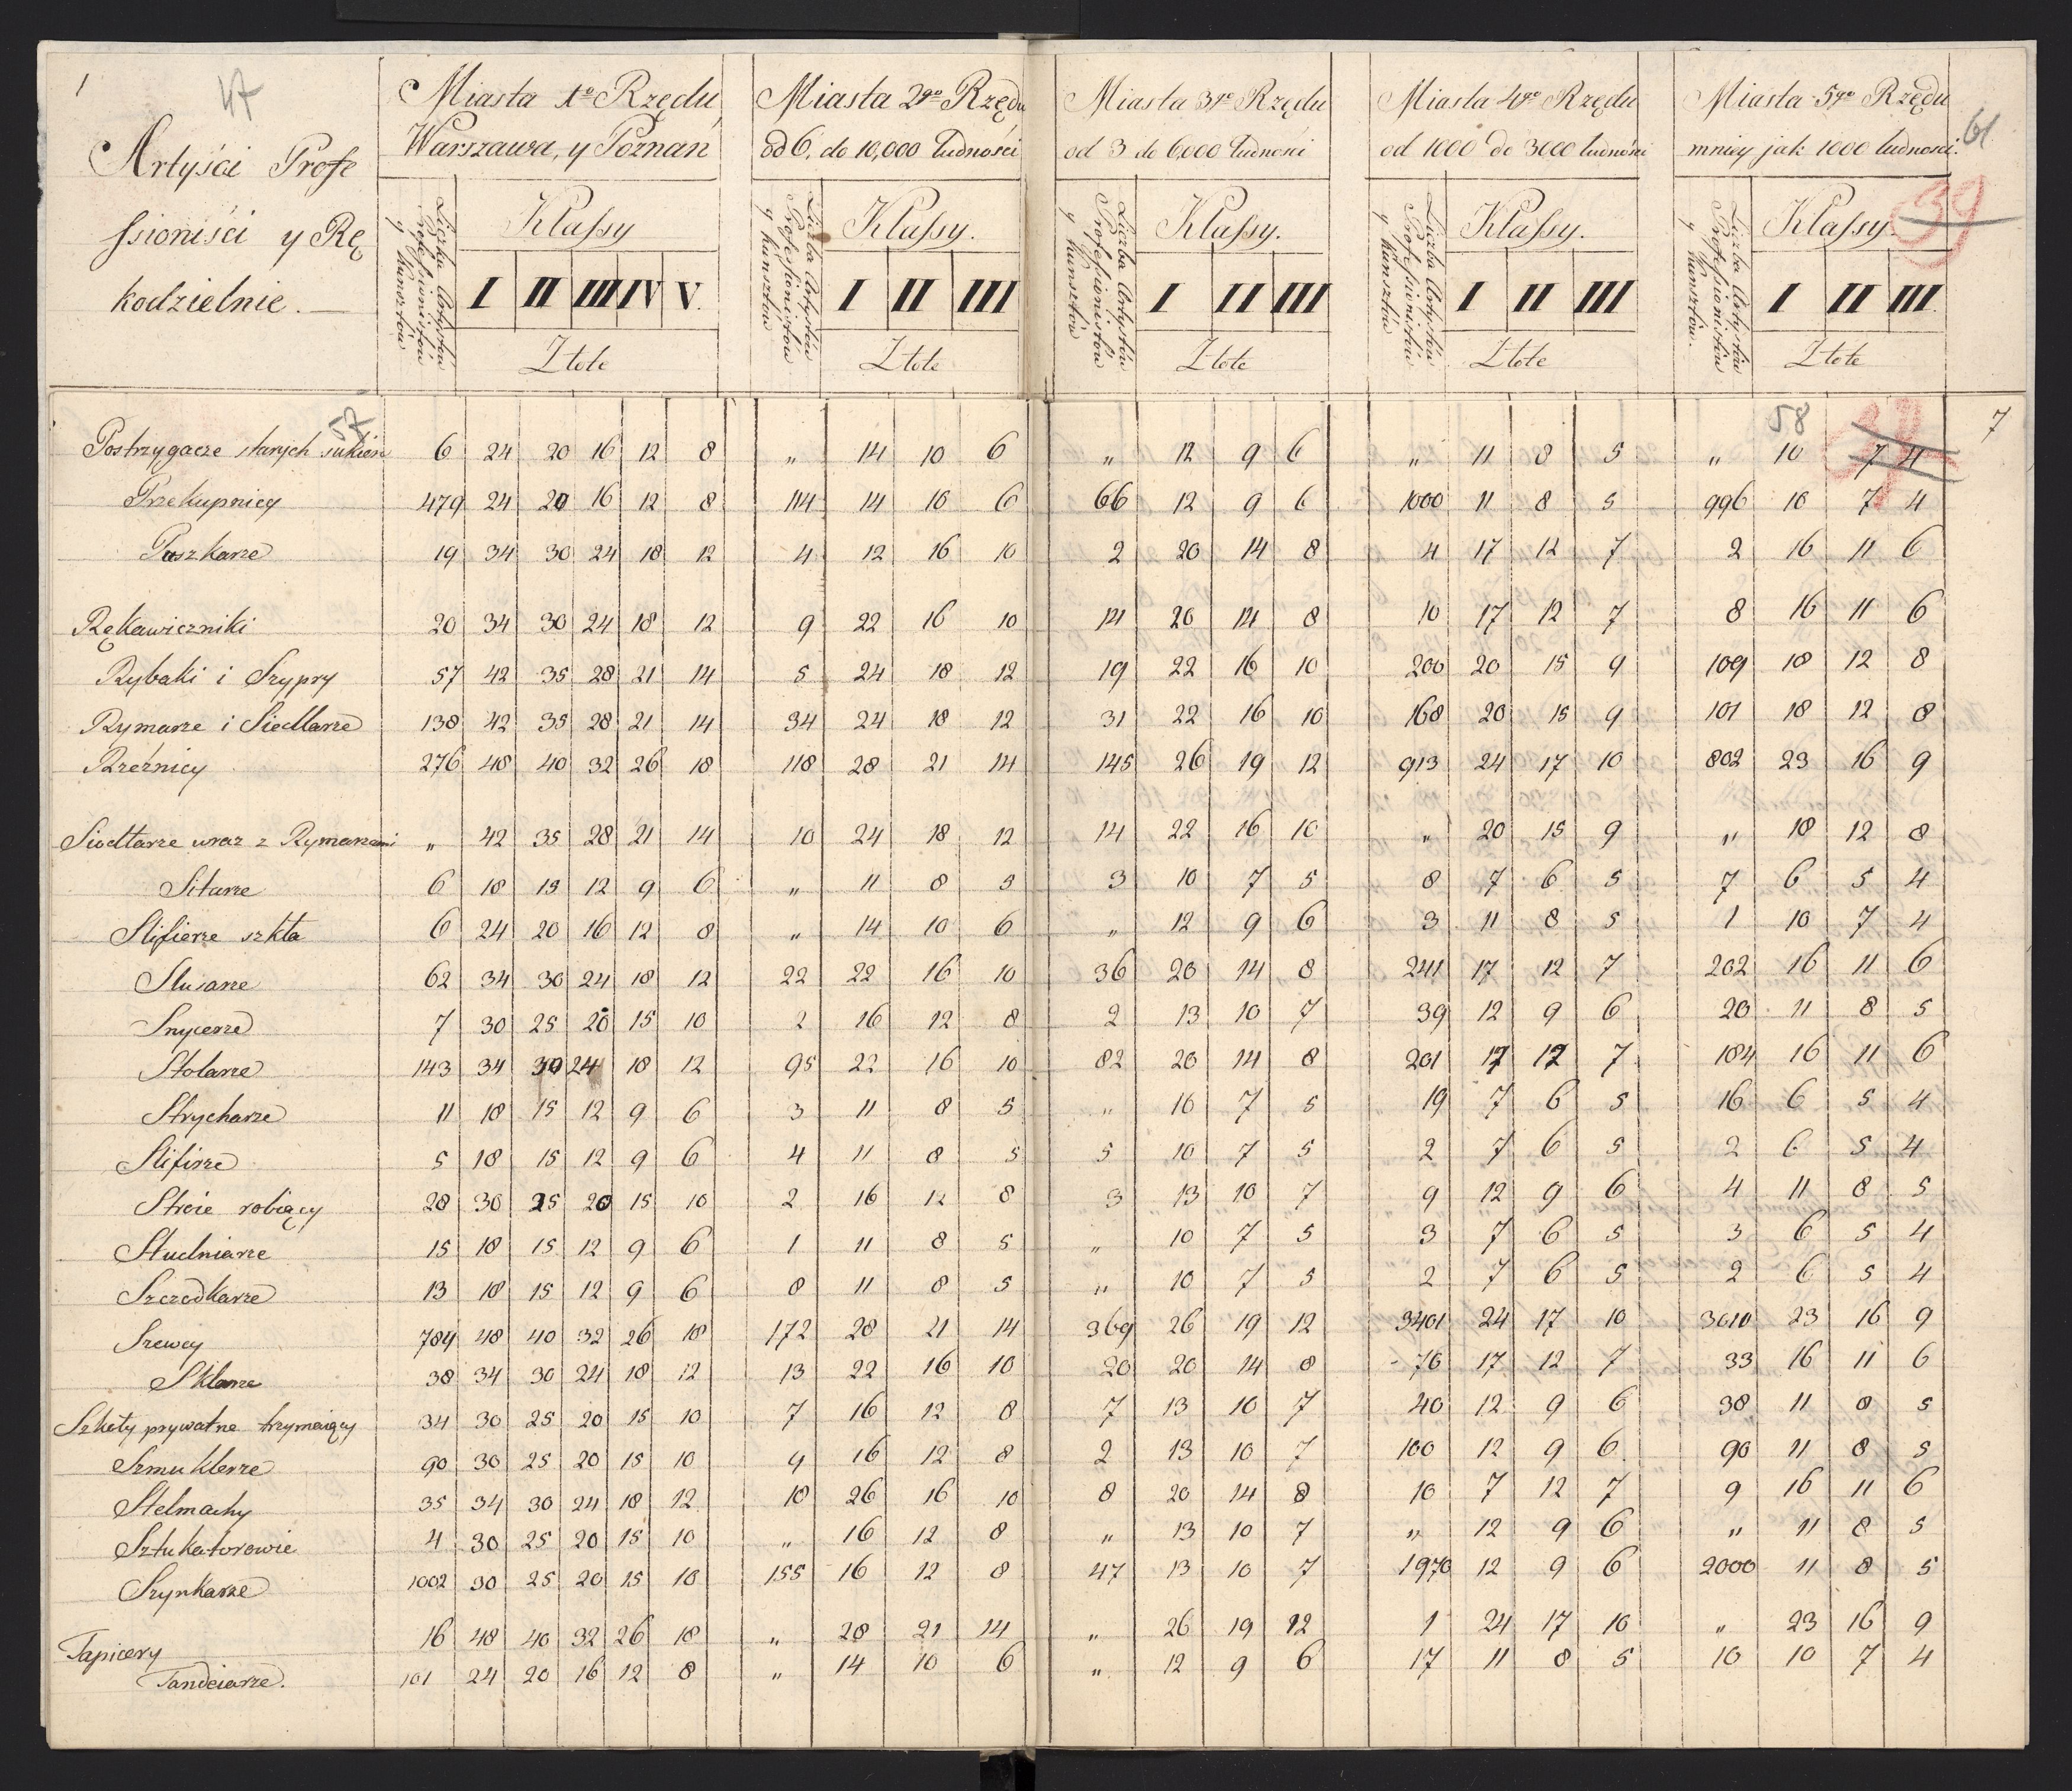 1
47
Artyści Profe
ssioniści y Rę
kodzielnie.
Miasta 1o Rzędu,
Warszawa, y Poznań
Liczba Artystów Professionistów y Kunsztów
Klassy
I II III IV V.
Złote
Miasta 2go Rzędu
od 6, do 10,000 ludności
Liczba Artystów Professionistów y Kunsztów
Klassy.
I II III
Złote
Miasta 3go Rzędu
od 3 do 6,000 ludności
Liczba Artystów Professionistów y Kunsztów
Klassy.
I II III
Złote
Miasta 4go Rzędu
od 1000 do 3000 ludności
Liczba Artystów Professionistów y Kunsztów
Klassy.
I II III
Złote
Miasta 5go Rzędu
mniey jak 1000 ludności.
Liczba Artystów Professionistów y Kunsztów.
Klassy.
I II III.
Złote
61
39
57
58
7
Postrzygacze starych sukien 6 24 20 16 12 8 „ 14 10 6 „ 12 9 6 „ 11 8 5 „ 10 7 4
Przekupnicy 479 24 20 16 12 8 114 14 10 6 66 12 9 6 1000 11 8 5 996 10 7 4
Puszkarze 19 34 30 24 18 12 4 12 16 10 2 20 14 8 4 17 12 7 2 16 11 6
Rękawiczniki 20 34 30 24 18 12 9 22 16 10 14 20 14 8 10 17 12 7 8 16 11 6
Rybaki i Szypry 57 42 35 28 21 14 5 24 18 12 19 22 16 10 200 20 15 9 109 18 12 8
Rymarze i Siedlarze 138 42 35 28 21 14 34 24 18 12 31 22 16 10 168 20 15 9 101 18 12 8
Rzeźnicy 276 48 40 32 26 18 118 28 21 14 145 26 19 12 913 24 17 10 802 23 16 9
Siodłarze wraz z Rymarzami „ 42 35 28 21 14 10 24 18 12 14 22 16 10 „ 20 15 9 „ 18 12 8
Sitarze 6 18 15 12 9 6 „ 11 8 5 3 10 7 5 8 7 6 5 7 6 5 4
Slifierze szkła 6 24 20 16 12 8 „ 14 10 6 „ 12 9 6 3 11 8 5 1 10 7 4
Slusarze 62 34 30 24 18 12 22 22 16 10 36 20 14 8 241 17 12 7 202 16 11 6
Snycerze 7 30 25 20 15 10 2 16 12 8 2 13 10 7 39 12 9 6 20 11 8 5
Stolarze 143 34 30 24 18 12 95 22 16 10 82 20 14 8 201 17 12 7 184 16 11 6
Strycharze 11 18 15 12 9 6 3 11 8 5 „ 10 7 5 19 7 6 5 16 6 5 4
Slifirze 5 18 15 12 9 6 4 11 8 5 5 10 7 5 2 7 6 5 2 6 5 4
Stroie robiący 28 30 25 20 15 10 2 16 12 8 3 13 10 7 9 12 9 6 4 11 8 5
Studniarze 15 18 15 12 9 6 1 11 8 5 „ 10 7 5 3 7 6 5 3 6 5 4
Szczodkarze 13 18 15 12 9 6 8 11 8 5 „ 10 7 5 2 7 6 5 2 6 5 4
Szewcy 784 48 40 32 26 18 172 28 21 14 369 26 19 12 3401 24 17 10 3010 23 16 9
Sklarze 38 34 30 24 18 12 13 22 16 10 20 20 14 8 76 17 12 7 33 16 11 6
Szkoły prywatne trzymaiący 34 30 25 20 15 10 7 16 12 8 7 13 10 7 40 12 9 6 38 11 8 5
Szmuklerze 90 30 25 20 15 10 9 16 12 8 2 13 10 7 100 12 9 6 90 11 8 5
Stelmachy 35 34 30 24 18 12 18 26 16 10 8 20 14 8 10 7 12 7 9 16 11 6
Sztukatorowie 4 30 25 20 15 10 „ 16 12 8 „ 13 10 7 „ 12 9 6 „ 11 8 5
Szynkarze 1002 30 25 20 15 10 155 16 12 8 47 13 10 7 1970 12 9 6 2000 11 8 5
Tapicery 16 48 40 32 26 18 „ 28 21 14 „ 26 19 12 1 24 17 10 „ 23 16 9
Tandeiarze. 101 24 20 16 12 8 „ 14 10 6 „ 12 9 6 17 11 8 5 10 10 7 4